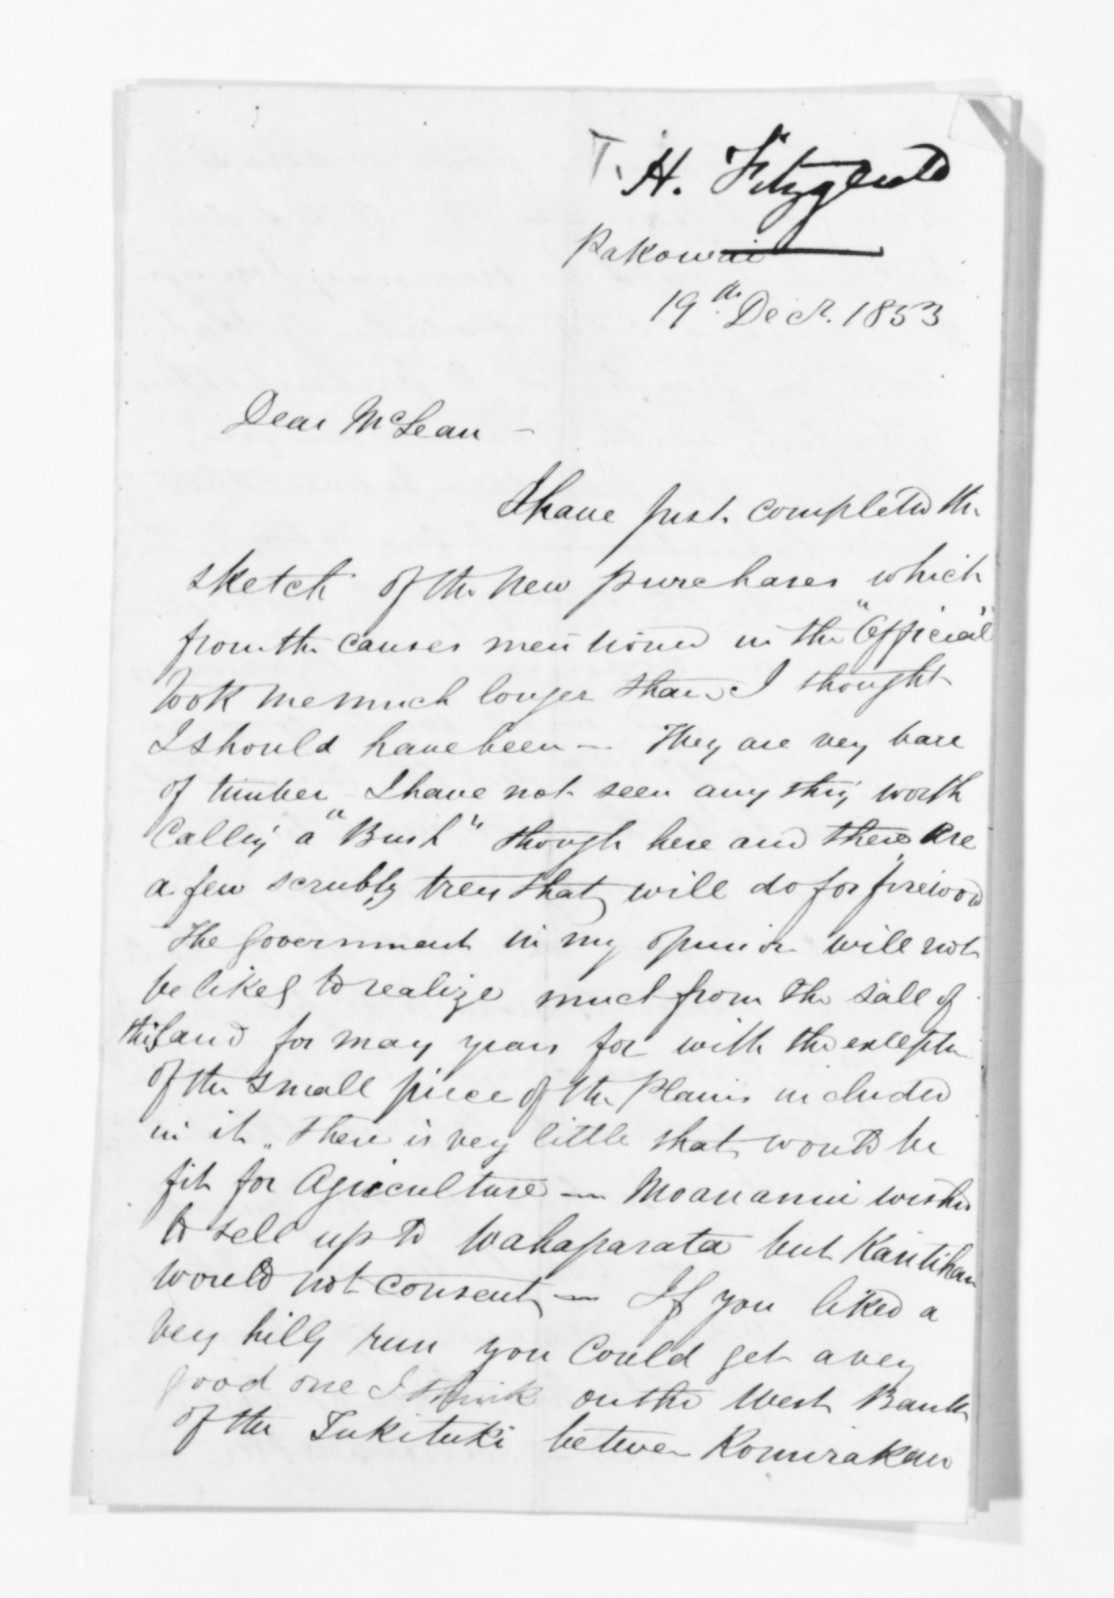 T. H. Fitzgerald
Pakowai
19th Decr. 1853
Dear McLean —
I have just completed the
sketch of the new purchases which
from the causes mentioned in the "Official"
took me much longer than I thought
I should have been — They are very bare
of timber I have not seen any thing worth
calling a "Bush" though here and there are
a few scrubby trees that will do for firewood
The Government in my opinion will not
be likely to realize much from the sale of
this land for many years for with the exceptn
of the small piece of the Plains included
in it. There is very little that would be
fit for Agriculture — Moananui wished
to sell up to Wahaparata but
would not consent — If you liked a
very hilly run you could get a very
good one I think on the West Bank
of the Tukituki between